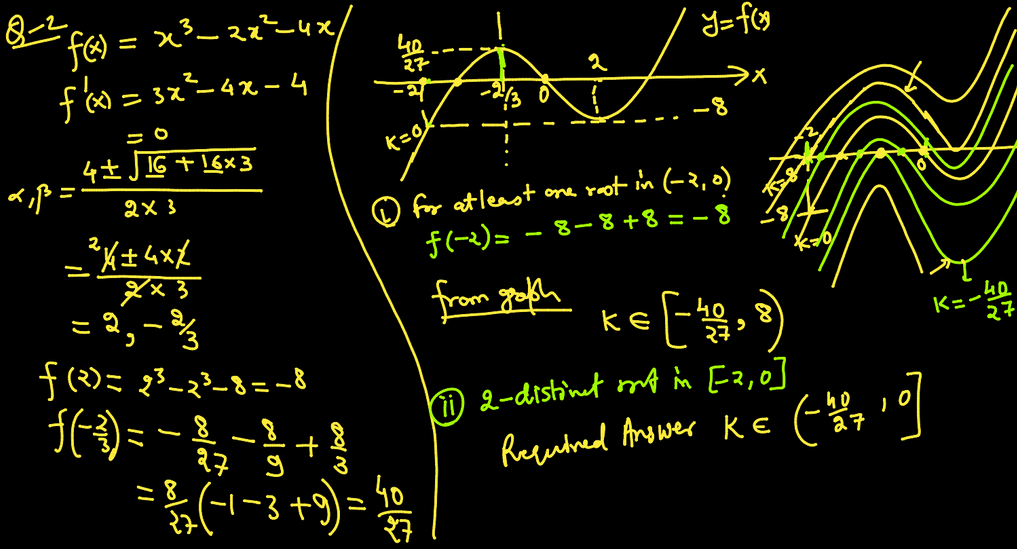 Q-2 f(x) = x³ - 2x² - 4x
f'(x) = 3x² - 4x - 4
= 0
α, β = (4 ± √(16 + 16×3)) / (2×3)
= (²4 ± 4×2) / (2×3)
= 2, -2/3
f(2) = 2³ - 2³ - 8 = -8
f(-2/3) = -8/27 - 8/9 + 8/3
= 8/27 (-1 - 3 + 9) = 40/27
y = f(x)
40/27
-2 -2/3 0 2 x
K=0 -8
(i) for atleast one root in (-2, 0)
f(-2) = - 8 - 8 + 8 = - 8
from graph
K ∈ [-40/27, 8)
(ii) 2-distinct root in [-2, 0]
Required Answer K ∈ (-40/27, 0]
-2 0
K=8
-8
K=0
K = -40/27